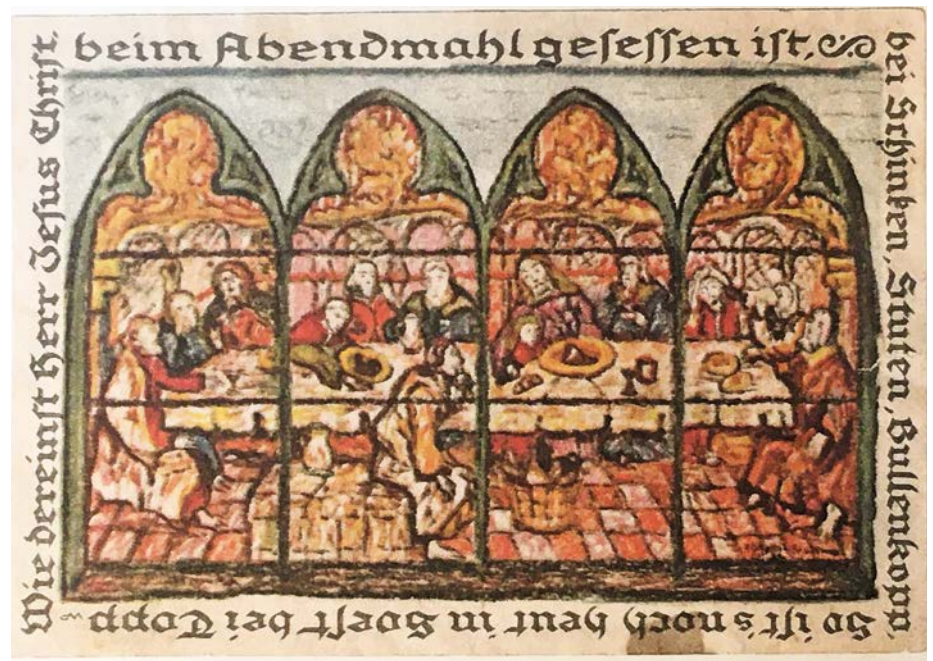 Wie dereinſt Herr Jeſus Chriſt.
beim Abendmahl geſeſſen iſt.
bei Schinken, Stuten, Bullenkopp,
So iſt's noch heut in Soeſt bei Topp